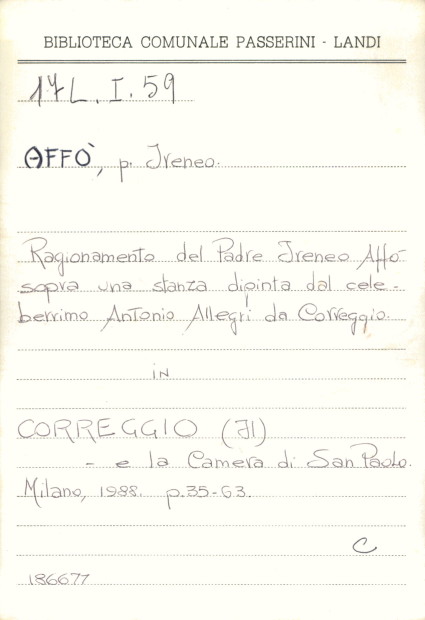 BIBLIOTECA COMUNALE PASSERINI - LANDI
17L. I. 59
AFFÒ, p. Ireneo.
Ragionamento del Padre Ireneo Affò
sopra una stanza dipinta dal cele-
berrimo Antonio Allegri da Correggio.
in
CORREGGIO (Il)
- e la Camera di San Paolo.
Milano, 1988. p.35-63.
C
186677